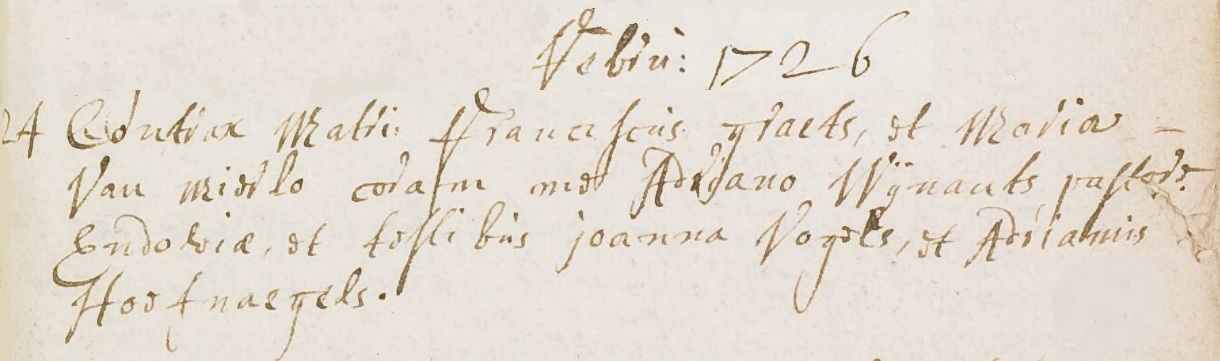 Febru: 1726
24 Contrax Matri: Franciscus graets, et Maria –
Van Mierlo coram me Adriano Wÿnants pastore
Endoviæ, et testibus joanna Vogels, et Adrianus
Hoefnaegels.